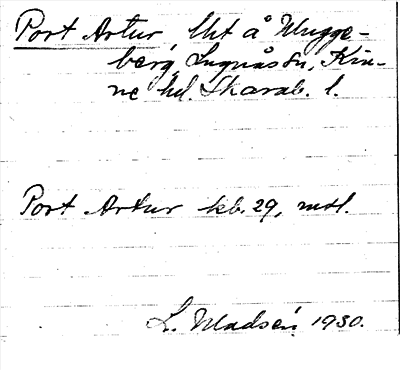 Port Artur, lht å Mugge-
berg, Lugnås sn, Kin-
ne hd. Skarab. l.
Port Artur kb. 29, mdl.
L. Madsén 1930.